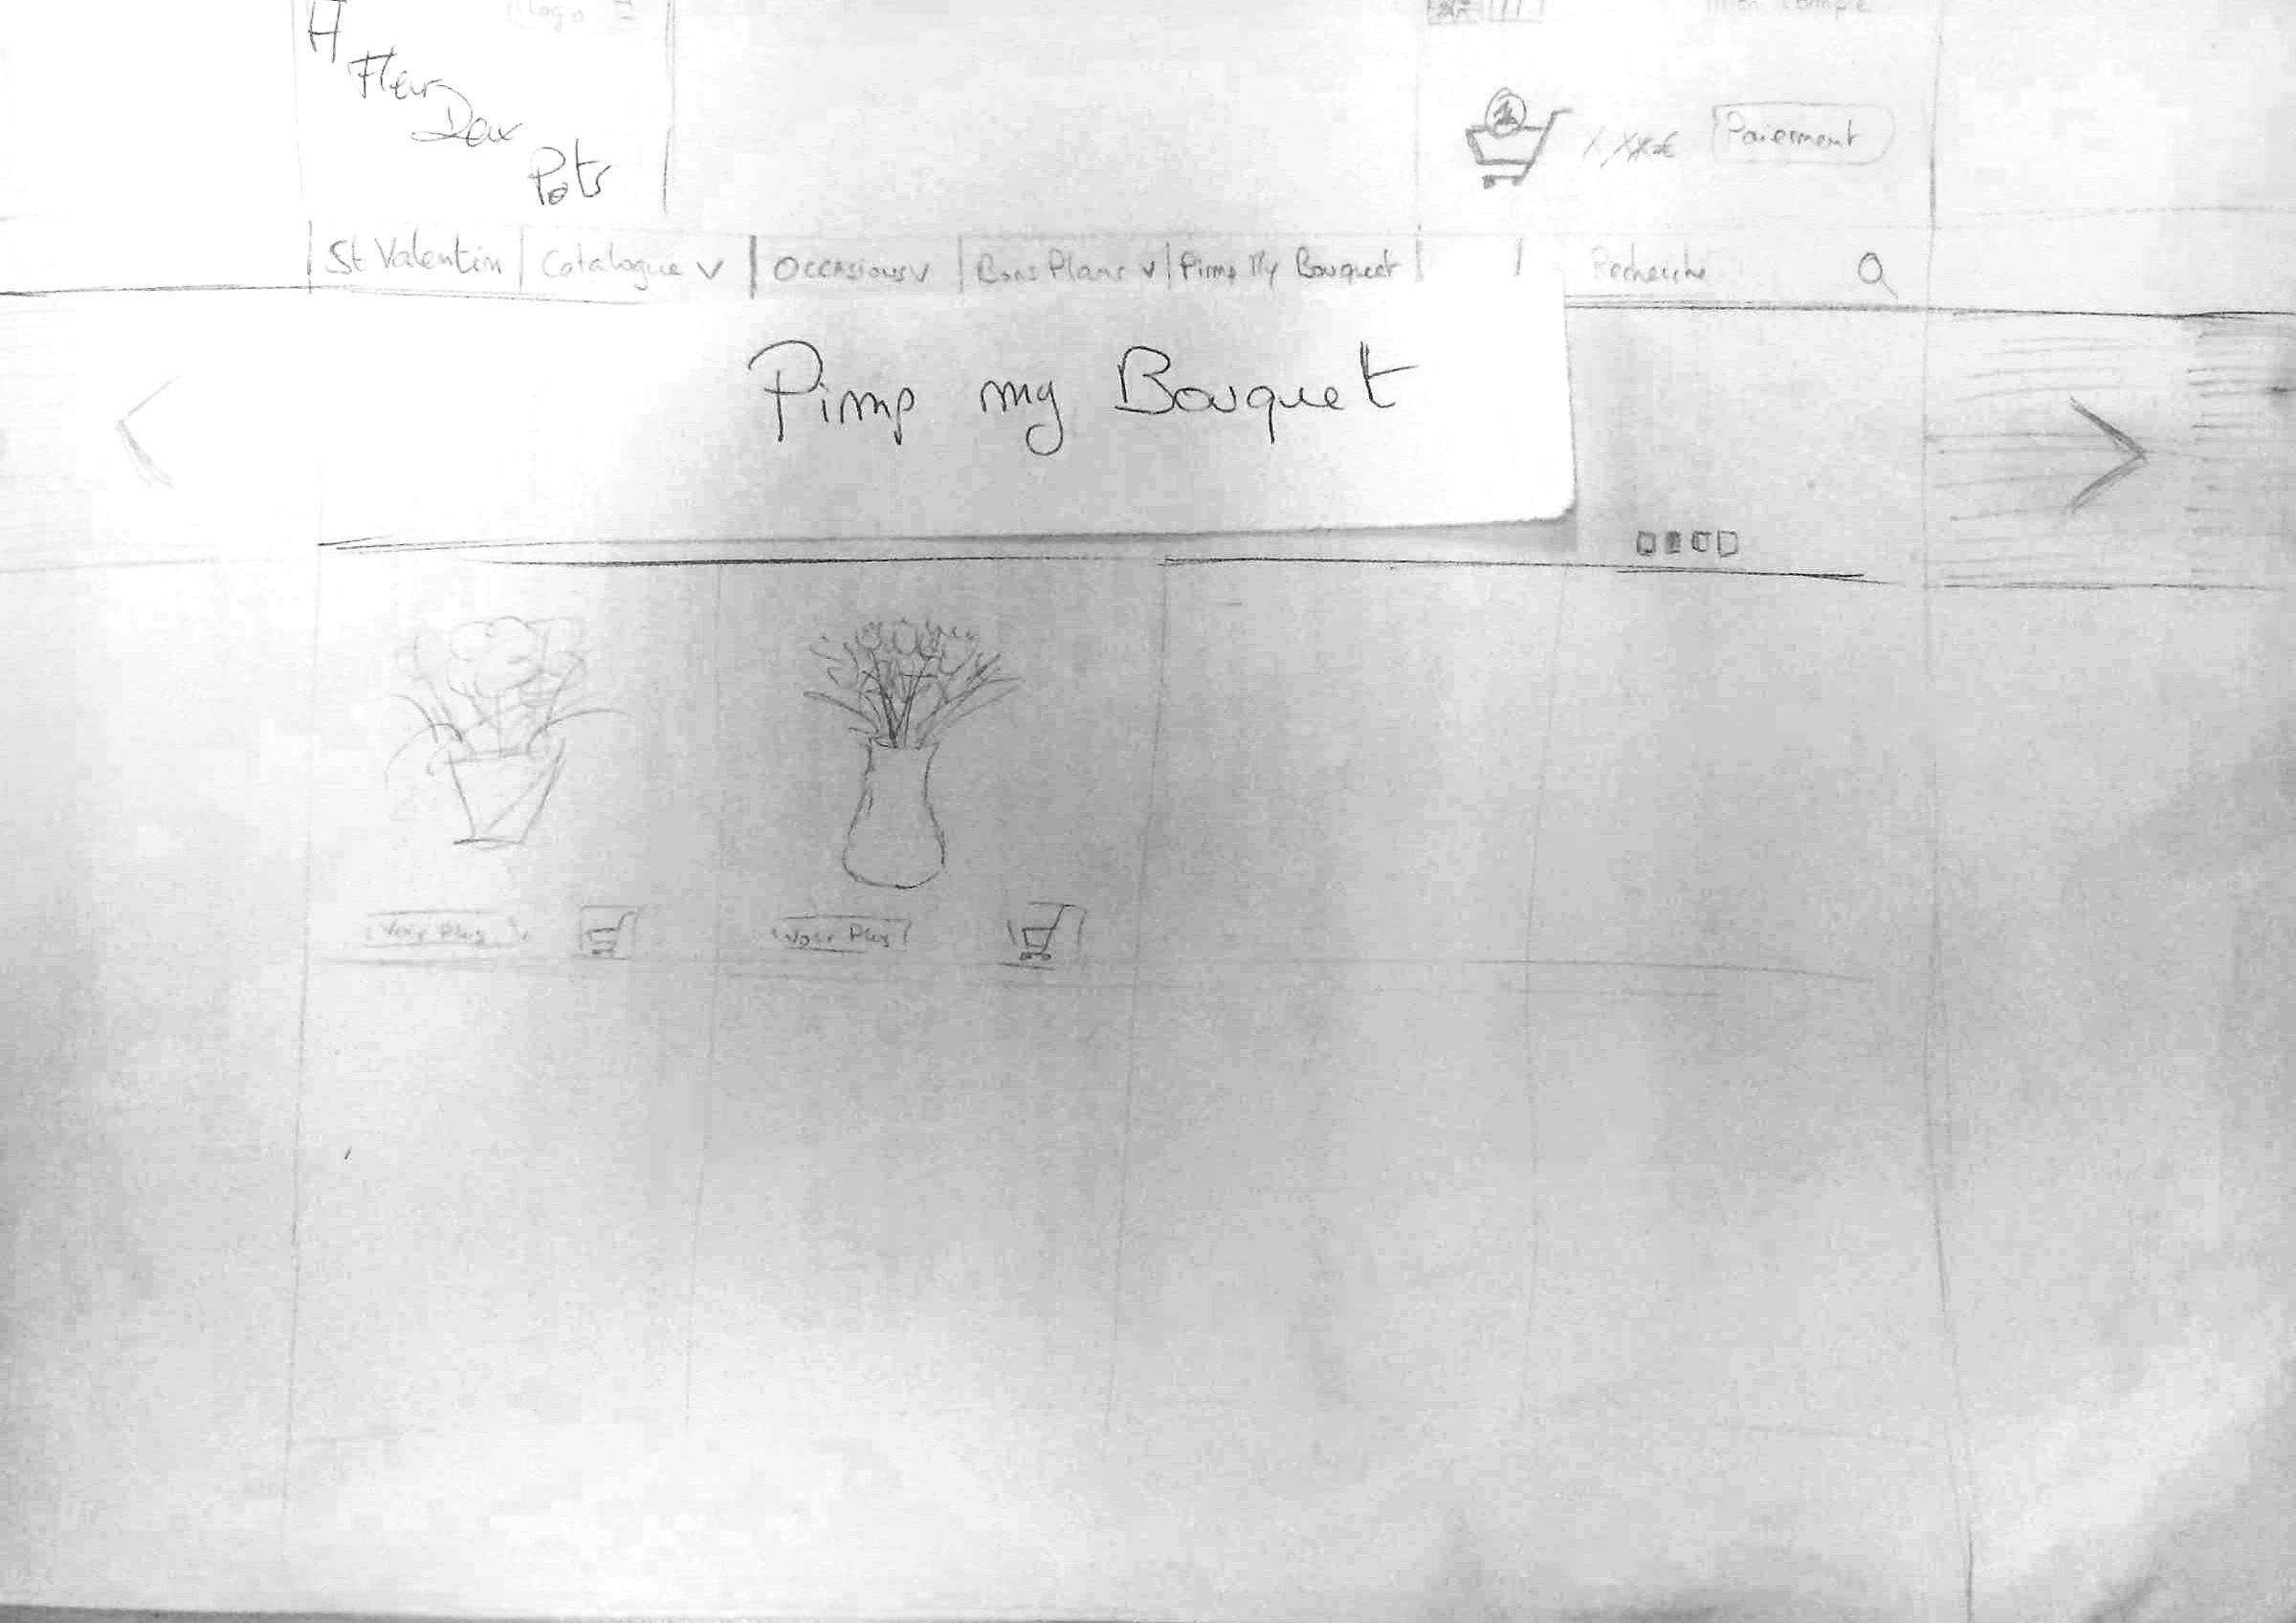 Logo
Mon compte
A
Fleur
Dax
Pots
1
X,XX€
Paiement
St Valentin
Catalogue V
Occasions V
Bons Plans V
Pimp My Bouquet
Recherche
Pimp my Bouquet
Voir Plus
Voir Plus